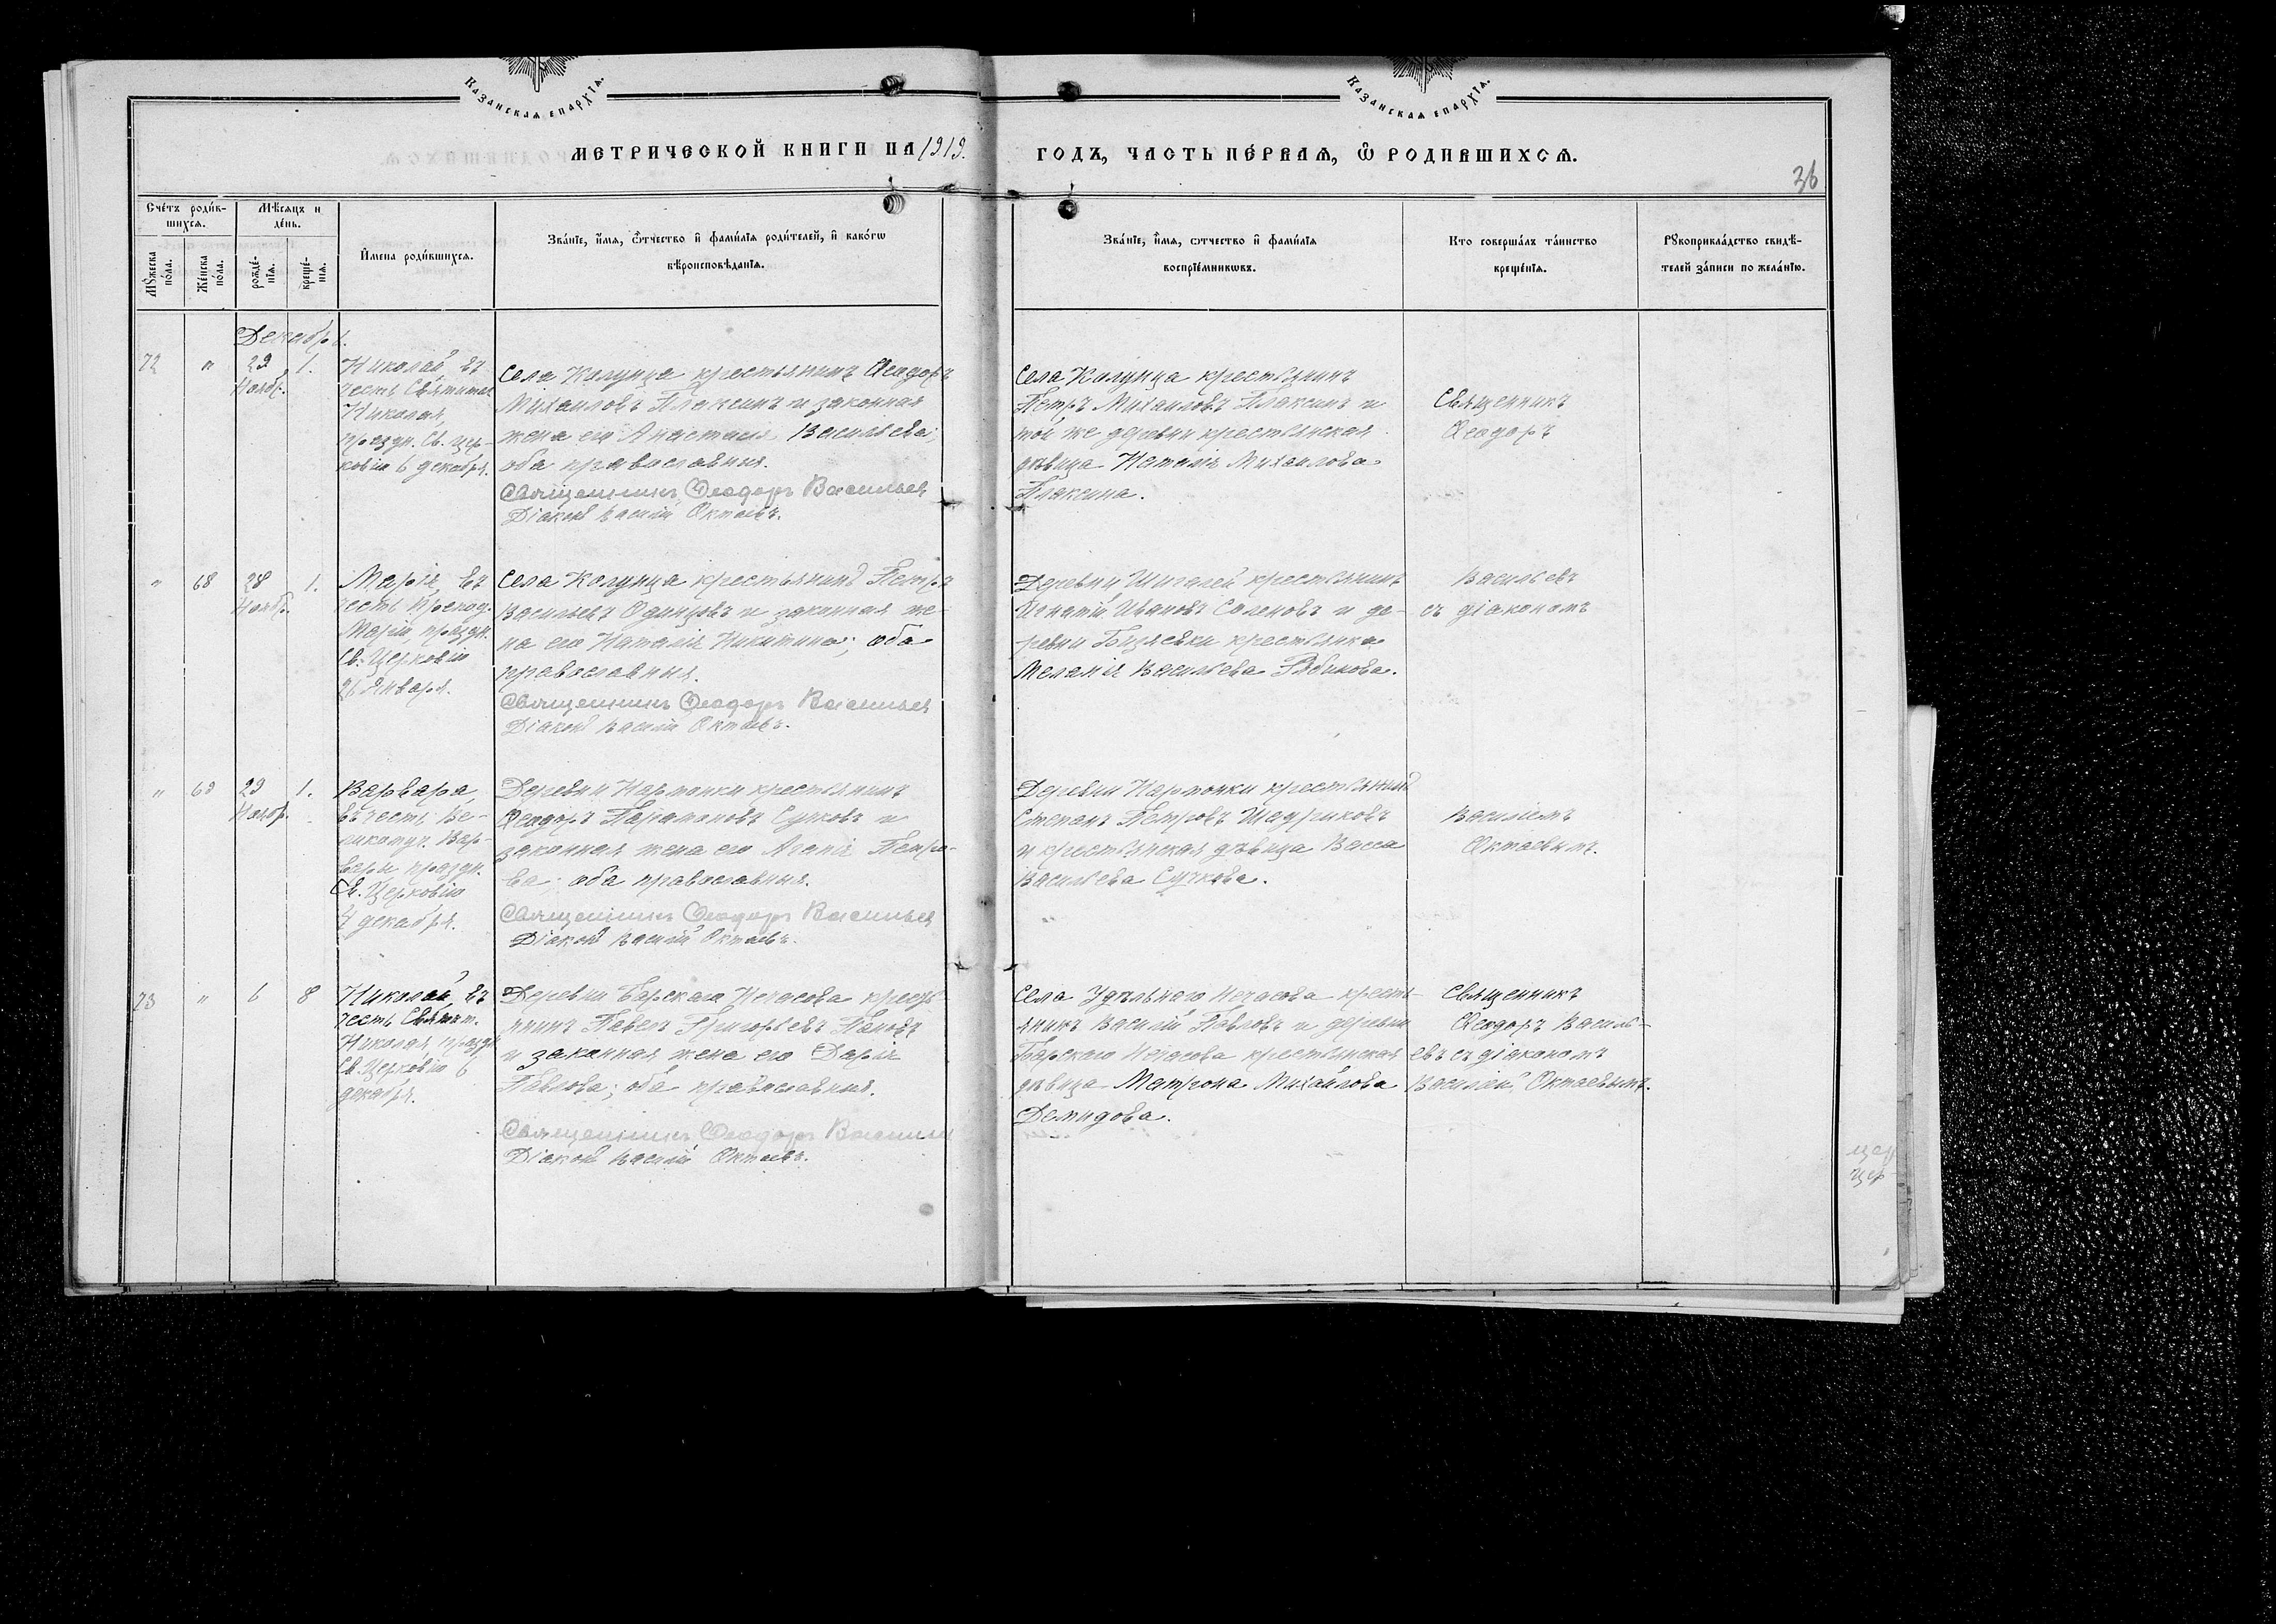 Казанская епархїѧ.
Казанская епархїѧ.
МЕТРИЧЕСКОЙ КНИГИ НА 1919.
ГОДЪ, ЧАСТЬ ПЕ́РВАѦ, Ѡ҆ РОДИВШИХСѦ.
36
Сче́тъ роди́в-
шихсѧ.
Мѣсѧцъ и
де́нь.
Мꙋ́жеска
по́ла.
Же́нска
по́ла.
рожде́-
нїѧ.
креще́-
нїѧ.
И҆мена роди́вшихсѧ.
Зва́нїе, и҆́мѧ, ѻ҆́тчество и҆ фами́лїѧ роди́телей, и҆ како́гѡ
вѣроисповѣ́данїѧ.
Зва́нїе, и҆́мѧ, ѻтчество и҆ фами́лїѧ
воспрїе́мникѡвъ.
Кто соверша́лъ та́инство
креще́нїѧ.
Рꙋкоприкла́дство свидѣ́-
телей за́писи по жела́нїю.
Декабрь.
72 " 29 1.
Ноябр.
Николай, въ
честь Святител
Николая,
праздн. Св. цер-
ковію 6 декабря.
Села Колунца крестьянинъ Ѳеодоръ
Михаиловъ Плаксинъ и законная
жена его Анастасія Васильева;
оба православныя.
Священникъ Ѳеодоръ Васильев
Діаконъ Василій Октаевъ.
Села Колунца крестьянинъ
Петръ Михаиловъ Плаксинъ и
той же деревни крестьянская
дѣвица Наталія Михаилова
Плаксина.
Священникъ
Ѳеодоръ
" 68 28 1.
Ноябр.
Марія, въ
честь Препод.
Маріи, праздн.
Св. Церковію
26 Января.
Села Колунца крестьянинъ Петръ
Васильевъ Одинцовъ и законная же-
на его Наталія Никитина; оба
православныя.
Священникъ Ѳеодоръ Васильев
Діаконъ Василій Октаевъ.
Деревни Шигалей крестьянинъ
Игнатій Ивановъ Соленовъ и де-
ревни Бизяевки крестьянка
Меланія Васильева Рябинова.
Васильевъ
съ діакономъ
" 69 29 1.
Ноябр.
Варвара,
въ честь Ве-
ликомуч. Вар-
вары праздн.
Св. Церковію
4 декабря.
Деревни Нармонки крестьянинъ
Ѳеодоръ Парамоновъ Сучковъ и
законная жена его Агапія Петро-
ва; оба православныя.
Священникъ Ѳеодоръ Васильев
Діаконъ Василій Октаевъ.
Деревни Нармонки крестьянинъ
Степанъ Петровъ Шадриковъ
и крестьянская дѣвица Васса
Васильева Сучкова.
Василіемъ
Октаевымъ.
73 " 6 8
Николай, въ
честь Святит.
Николая праздн
Св. Церковію 6
декабря.
Деревни Барскаго Нечасова кресть-
янинъ Павелъ Григорьевъ Пановъ
и законная жена его Дарія
Павлова; оба православныя.
Священникъ Ѳеодоръ Васильев
Діаконъ Василій Октаевъ.
Села Удѣльнаго Нечасова кресть-
янинъ Василій Павловъ и деревни
Барскаго Нечасова крестьянская
дѣвица Матрона Михайлова
Демидова.
Священникъ
Ѳеодоръ Василь-
евъ съ діакономъ
Василіемъ Октаевымъ.